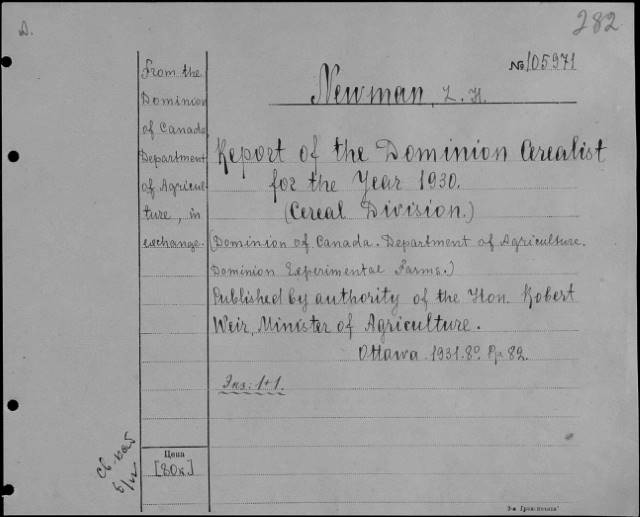 D.
282
№ 105971
Newman, L. H.
From the
Dominion
of Canada
Department
of Agricul-
ture, in
exchange.
Report of the Dominion Cerealist
for the Year 1930.
(Cereal Division.)
(Dominion of Canada. Department of Agriculture.
Dominion Experimental Farms.)
Published by authority of the Hon. Robert
Weir, Minister of Agriculture.
Ottawa. 1931. 8º. Pp. 82.
Экз: 1+1.
Цена
[80к.]